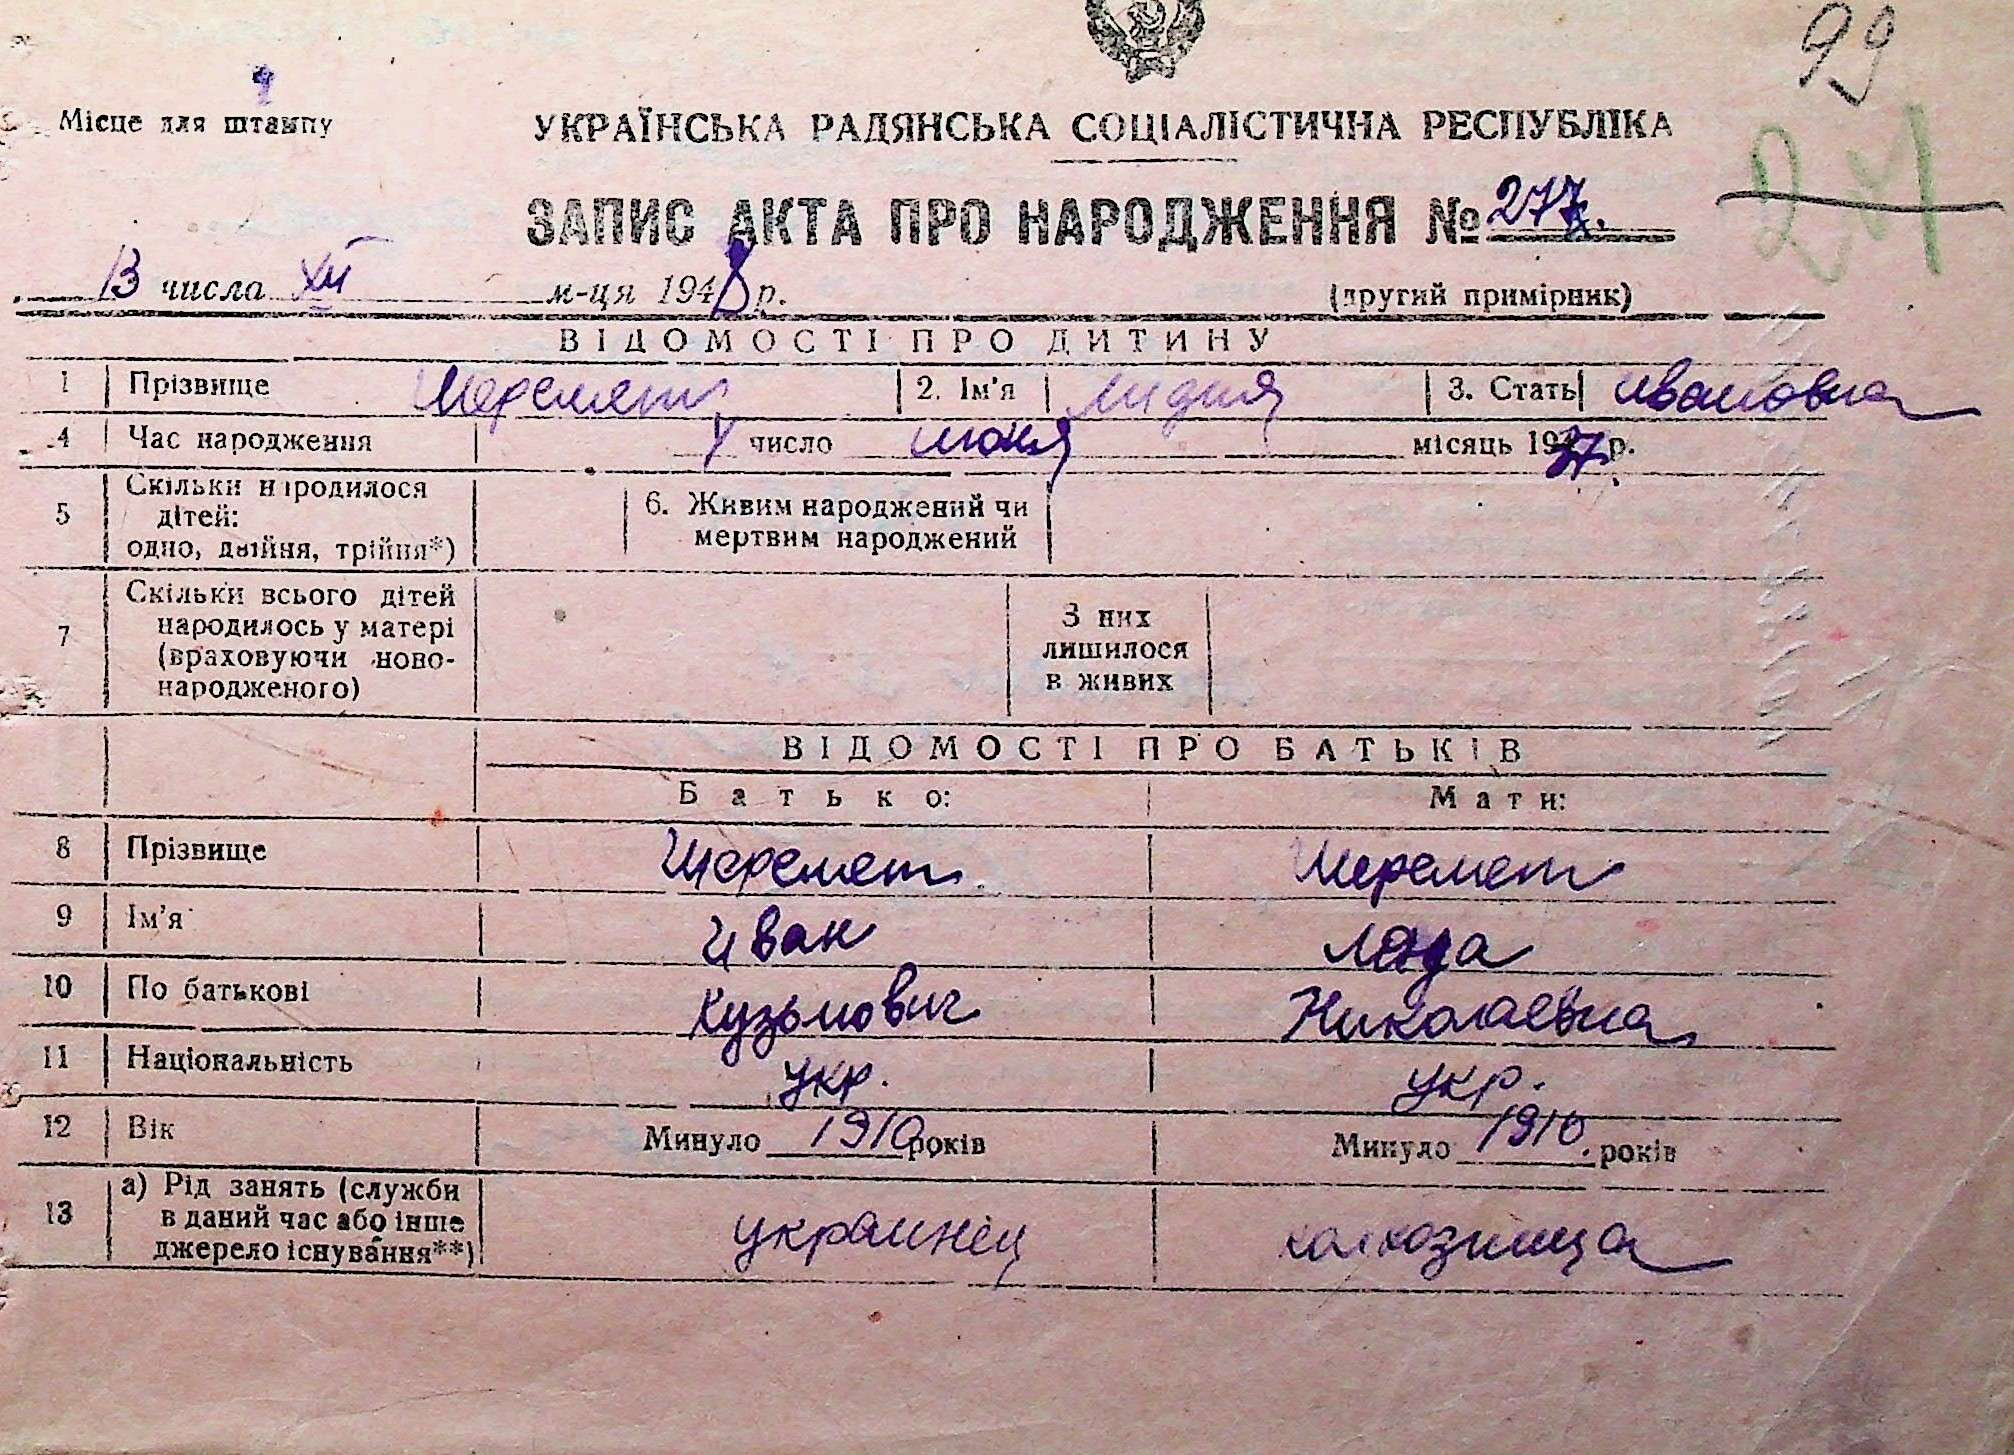 99
21
Місце для штампу
УКРАЇНСЬКА РАДЯНСЬКА СОЦІАЛІСТИЧНА РЕСПУБЛІКА
ЗАПИС АКТА ПРО НАРОДЖЕННЯ № 277.
13 числа XII м-ця 1948 р. (другий примірник)
ВІДОМОСТІ ПРО ДИТИНУ
1 Прізвище Шеремет 2. Ім'я Лидия 3. Стать Ивановна
4 Час народження число июня місяць 1937 р.
5 Скільки народилося дітей: одно, двійня, трійня*) 6. Живим народжений чи мертвим народжений
7 Скільки всього дітей народилось у матері (враховуючи новонародженого) З них лишилося в живих
ВІДОМОСТІ ПРО БАТЬКІВ
Батько: Мати:
8 Прізвище Шеремет Шеремет
9 Ім'я Иван
10 По батькові Кузьмович Николаевна
11 Національність укр. укр.
12 Вік Минуло 1910 років Минуло 1910. років
13 а) Рід занять (служби в даний час або інше джерело існування**) украинец колхозница